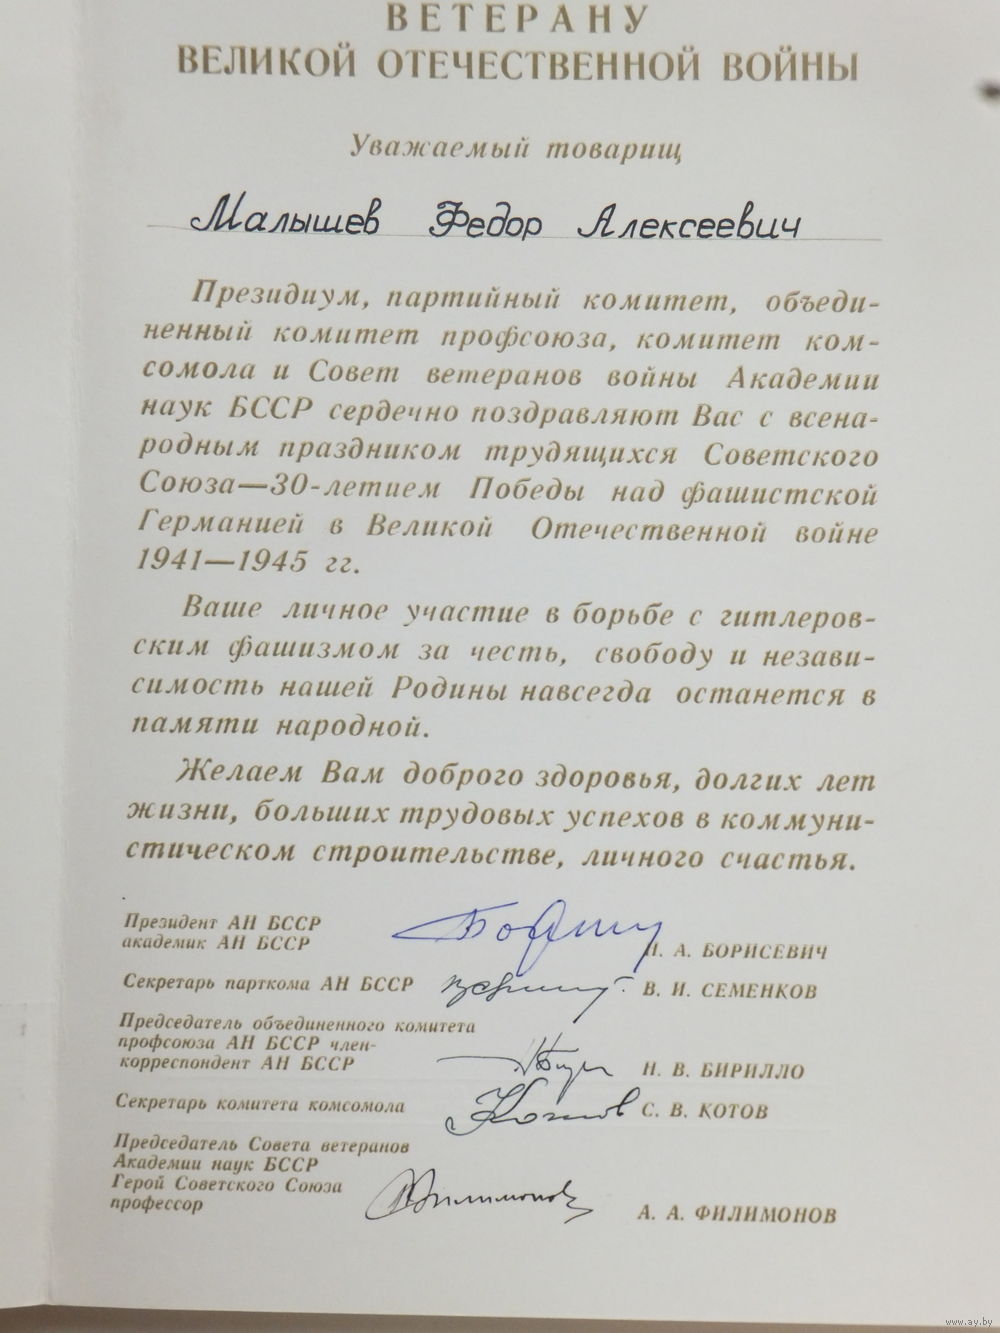 ВЕТЕРАНУ
ВЕЛИКОЙ ОТЕЧЕСТВЕННОЙ ВОЙНЫ
Уважаемый товарищ
Малышев Федор Алексеевич
Президиум, партийный комитет, объеди-
ненный комитет профсоюза, комитет ком-
сомола и Совет ветеранов войны Академии
наук БССР сердечно поздравляют Вас с всена-
родным праздником трудящихся Советского
Союза—30-летием Победы над фашистской
Германией в Великой Отечественной войне
1941—1945 гг.
Ваше личное участие в борьбе с гитлеров-
ским фашизмом за честь, свободу и незави-
симость нашей Родины навсегда останется в
памяти народной.
Желаем Вам доброго здоровья, долгих лет
жизни, больших трудовых успехов в коммуни-
стическом строительстве, личного счастья.
Президент АН БССР
академик АН БССР
А. БОРИСЕВИЧ
Секретарь парткома АН БССР В. И. СЕМЕНКОВ
Председатель объединенного комитета
профсоюза АН БССР член-
корреспондент АН БССР Н. В. БИРИЛЛО
Секретарь комитета комсомола Котов С. В. КОТОВ
Председатель Совета ветеранов
Академии наук БССР
Герой Советского Союза
профессор Филимонов А. А. ФИЛИМОНОВ
www.ay.by